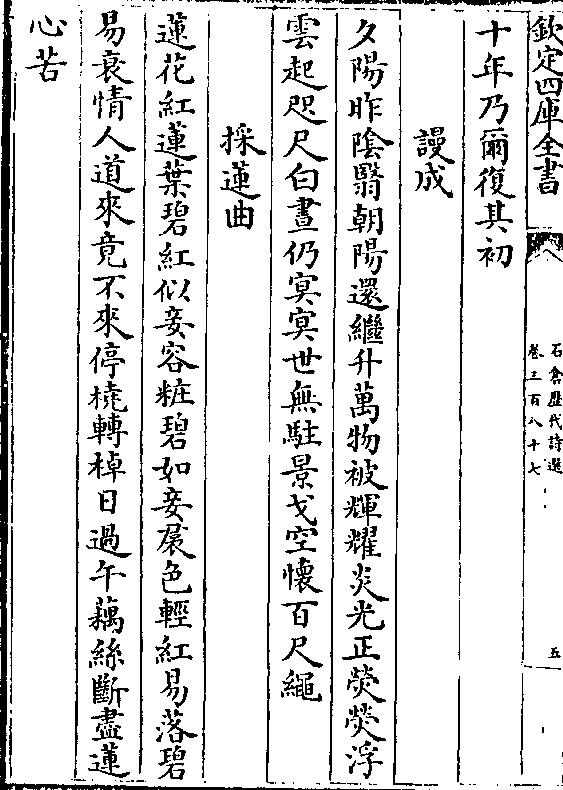 欽定四庫全書
石倉歷代詩選
卷三百八十七
五
十年乃爾復其初
謾成
夕陽昨陰翳朝陽還繼升萬物被輝耀炎光正熒熒浮
雲起咫尺白晝仍冥冥世無駐景戈空懷百尺繩
採蓮曲
蓮花紅蓮葉碧紅似妾容粧碧如妾裙色輕紅易落碧
易衰情人道來竟不來停橈轉棹日過午藕絲斷盡蓮
心苦